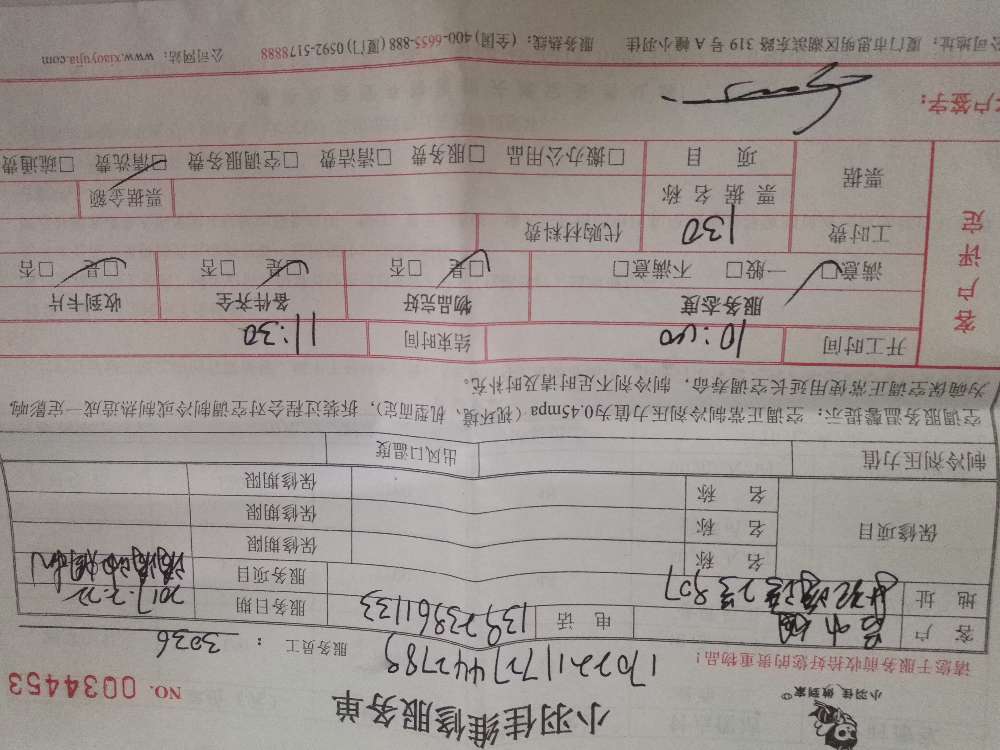 小羽佳 做到家
小羽佳维修服务单
NO. 0034453
请您于服务前收拾好您的贵重物品!
1702211727442789
服务员工: 3036
客 户
电 话 13923861133
服务日期 2017.2.22
地 址
服务项目
保修项目
名 称 保修期限
名 称 保修期限
名 称 保修期限
制冷剂压力值 出风口温度
空调服务温馨提示:空调正常制冷剂压力值为0.45mpa(视环境、机型而定),拆装过程会对空调制冷或制热造成一定影响,
为确保空调正常使用延长空调寿命,制冷剂不足时请及时补充。
客户评定
开工时间 10:00 结束时间 11:30
服务态度 物品完好 备件齐全 收到卡片
满意□ 一般□ 不满意□ □是 □否 □是 □否 □是 □否
工时费 130 代购材料费
票据 票据名称 票据金额
项 目 □搬办公用品 □服务费 □清洁费 □空调服务费 □清洗费 □疏通费
客户签字:
公司地址:厦门市思明区湖滨东路 319 号 A 幢小羽佳 服务热线:(全国) 400-6655-888 (厦门) 0592-5178888 公司网站:www.xiaoyujia.com